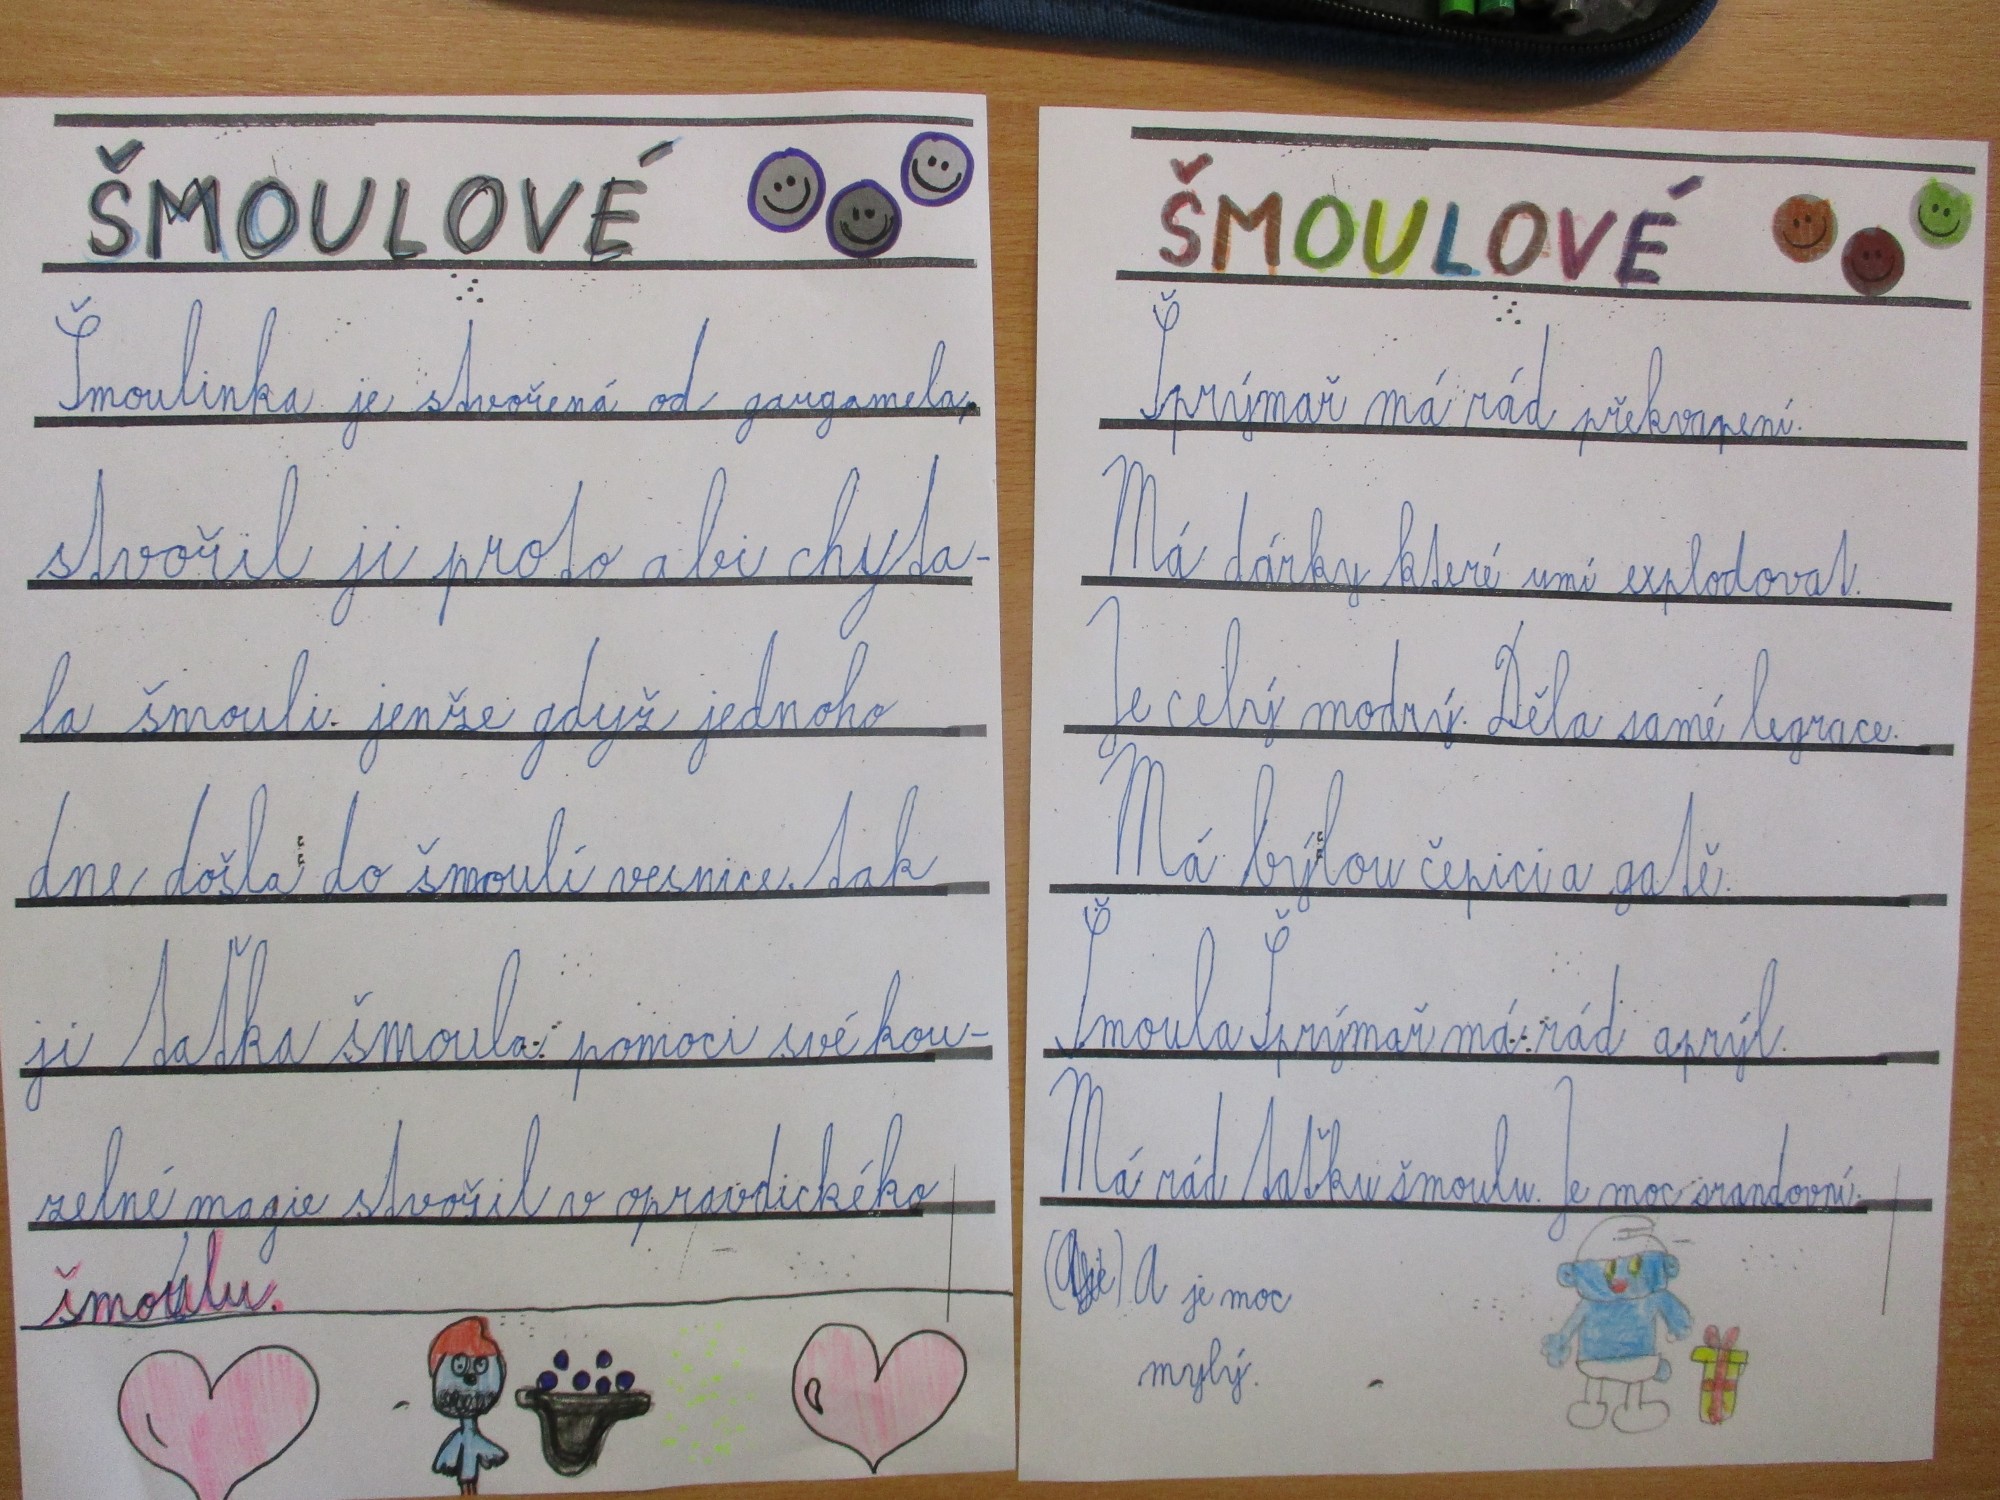 ŠMOULOVÉ
Šmoulinka je stvořená od gargamela,
stvořil ji proto abi chyta-
la šmouli. jenže gdyž jednoho
dne došla do šmoulí vesnice. tak
ji taťka šmoula pomoci své kou-
zelné magie stvořil v opravdického
šmoulu.
ŠMOULOVÉ
Šprýmař má rád překvapení.
Má dárky které umí explodovat.
Je celrý modrý. Děla samé legrace.
Má býlou čepici a gatě.
Šmoula Šprýmař má rád aprýl.
Má rád taťku šmoulu. Je moc srandovní.
A je moc
mylý.